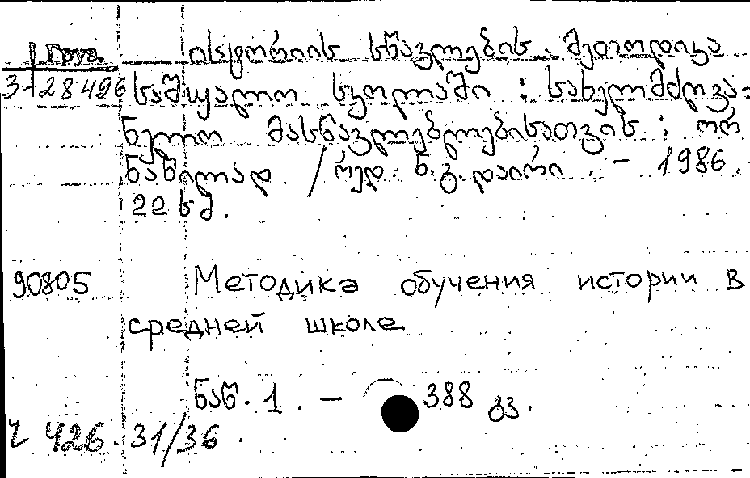 Груз.
ისტორიის სწავლების მეთოდიკა
3-28496 საშუალო სკოლაში : სახელმძღვა-
ნელო მასწავლებლებისათვის : ორ
ნაწილად / რედ. ნ. გ. დაირი. – 1986.
22 სმ.
90805 Методика обучения истории в
средней школе
ნაწ. 1. – 388 გვ.
426.31/36.